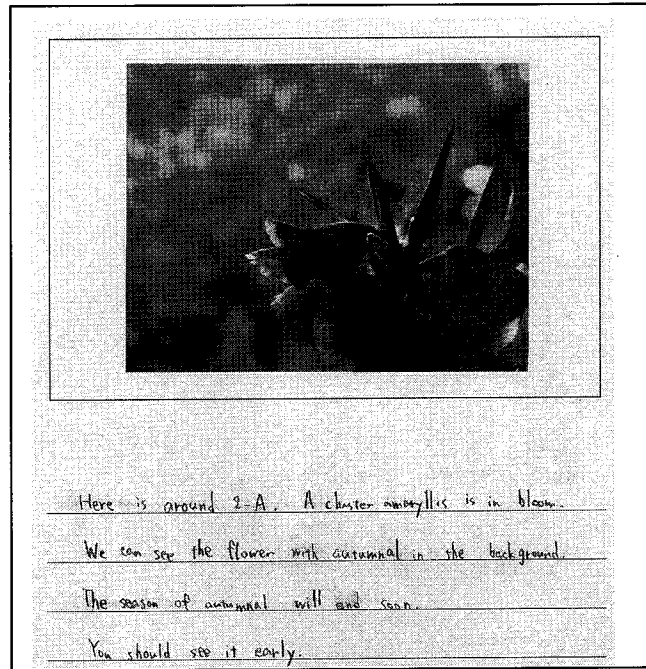 Here is around 2-A. A cluster amaryllis is in bloom.
We can see the flower with autumnal in the background.
The season of autumnal will end soon.
You should see it early.